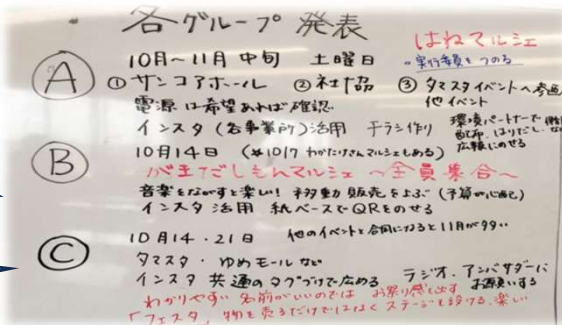 各グループ発表
はねマルシェ
・実行委員をつのる
Ⓐ 10月~11月中旬 土曜日
① サンコアホール ② 社協 ③ タマスタイベントへ参画
他イベント
電源は希望あれば確認
インスタ(各事業所)活用 チラシ作り
環境パートナーで
配布、はりだし、
広報にのせる
Ⓑ 10月14日 (※10/7 わがたけさんマルシェもある)
マルシェ ~全員集合~
音楽をながすと楽しい! 移動販売をよぶ(予算が心配)
インスタ活用 紙ベースでQRをのせる
Ⓒ 10月14・21日 他のイベントと合同になると11月が多い
タマスタ・ゆめモールなど
インスタ 共通のタグづけで広める ラジオ、アンバサダーに
お願いする
わかりやすい名前がいいのでは お祭り感を出す
「フェスタ」物を売るだけではなくステージを設ける、楽しい